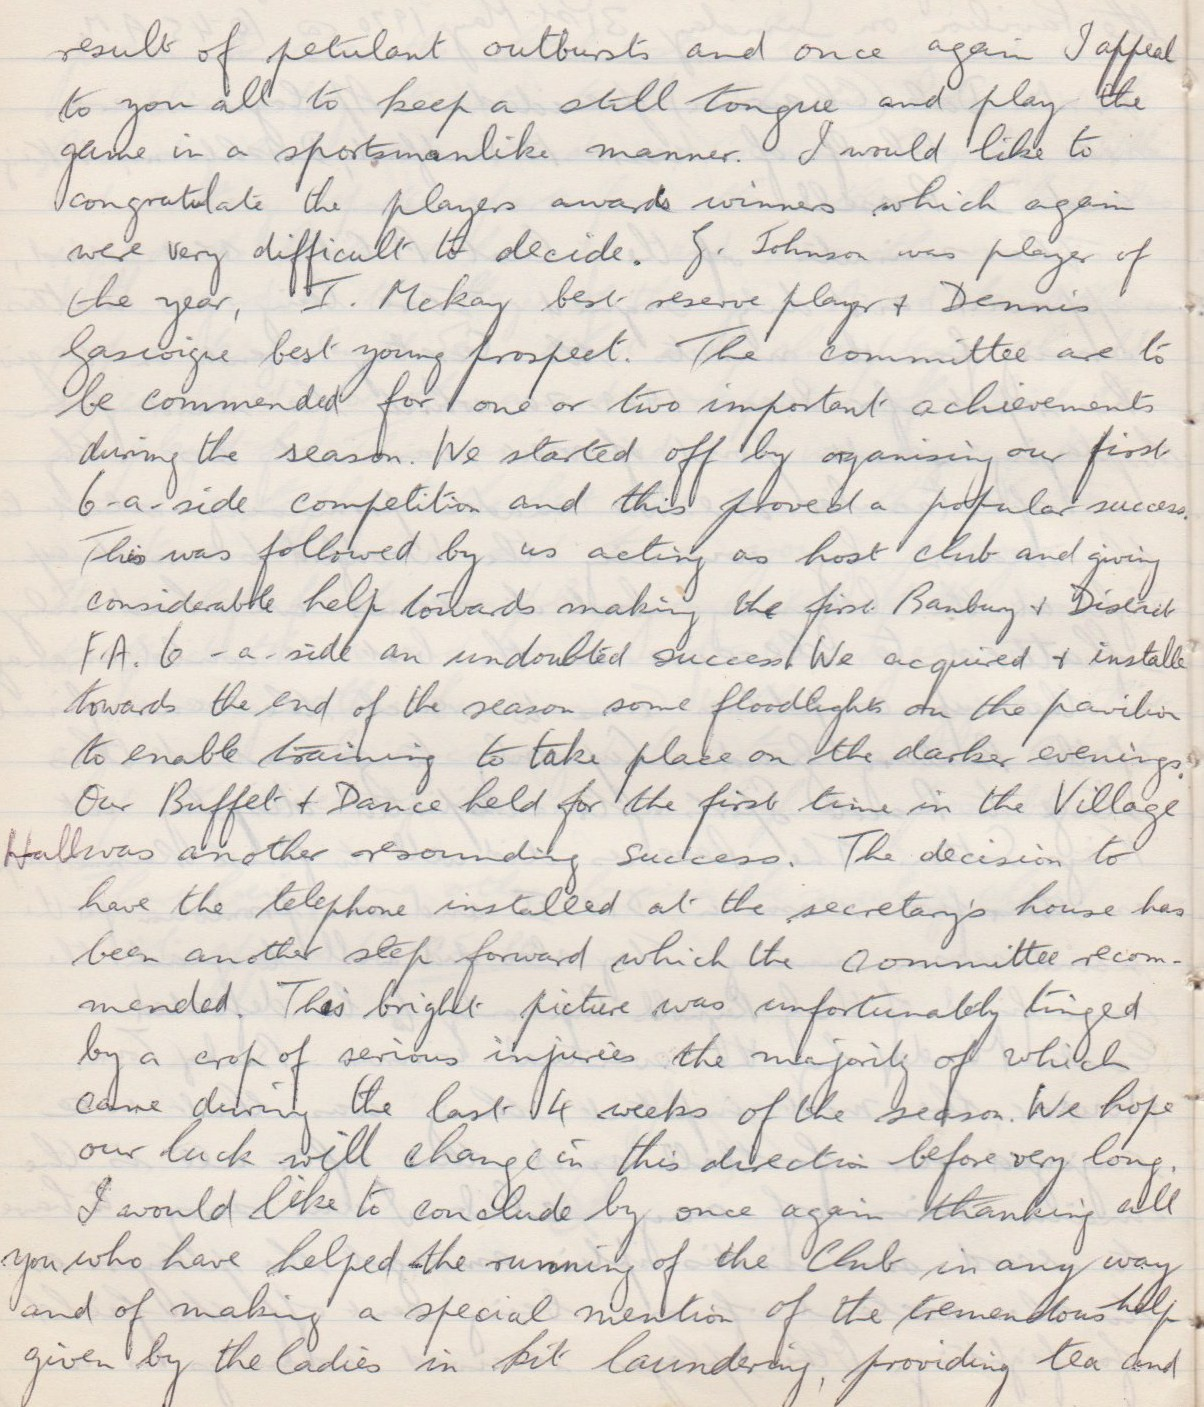 result of petulant outbursts and once again I appeal
to you all to keep a still tongue and play the
game in a sportsmanlike manner. I would like to
congratulate the players awards winners which again
were very difficult to decide. G. Johnson was player of
the year, I. McKay best reserve playr + Dennis
Gascoigne best young prospect. The committee are to
be commended for one or two important achievements
during the season. We started off by organising our first
6-a-side competition and this proved a popular success.
This was followed by us acting as host club and giving
considerable help towards making the first Banbury + District
F.A. 6-a-side an undoubted success. We acquired + installe
towards the end of the season some floodlights on the pavilion
to enable training to take place on the darker evenings.
Our Buffet + Dance held for the first time in the Village
Hall was another resounding success. The decision to
have the telephone installed at the secretary's house has
been another step forward which the committee recom-
mended. This bright picture was unfortunately tinged
by a crop of serious injuries the majority of which
came during the last 4 weeks of the season. We hope
our luck will change in this direction before very long.
I would like to conclude by once again thanking all
you who have helped the running of the Club in any way
and of making a special mention of the tremendous help
given by the ladies in kit laundering, providing tea and